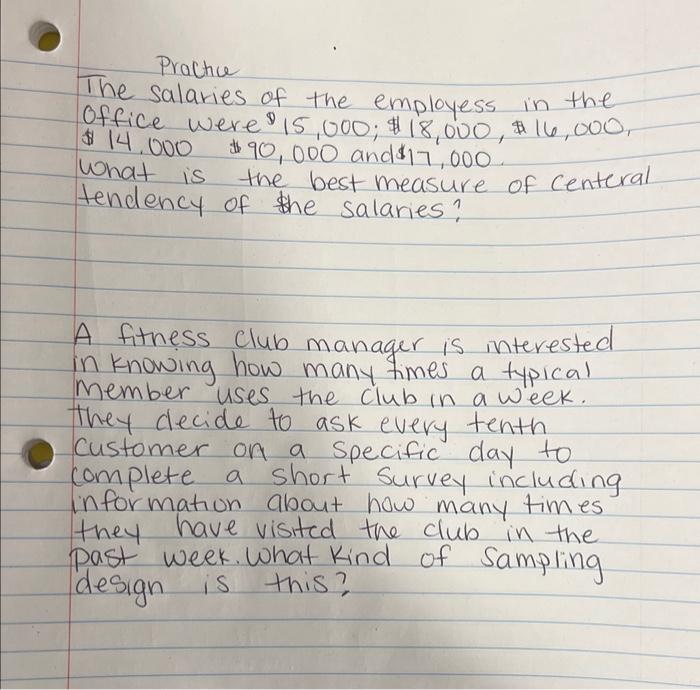 Practice
The salaries of the employess in the
office were $15,000; $18,000, $16,000,
$14,000 $90,000 and $17,000.
What is the best measure of centeral
tendency of the salaries?
A fitness club manager is interested
in knowing how many times a typical
member uses the club in a week.
They decide to ask every tenth
customer on a specific day to
complete a short survey including
information about how many times
they have visited the club in the
past week. What kind of sampling
design is this?